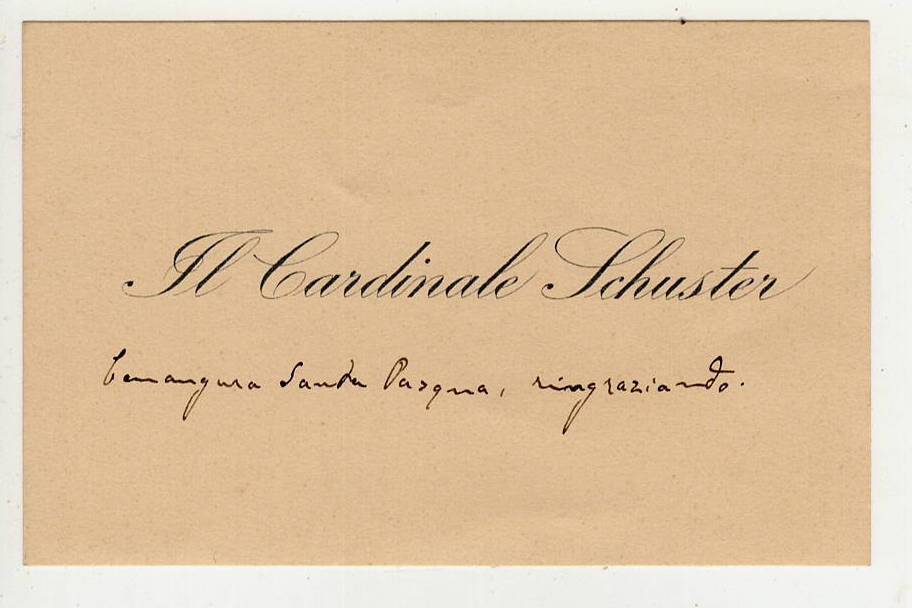 Il Cardinale Schuster
benaugura Santa Pasqua, ringraziando.